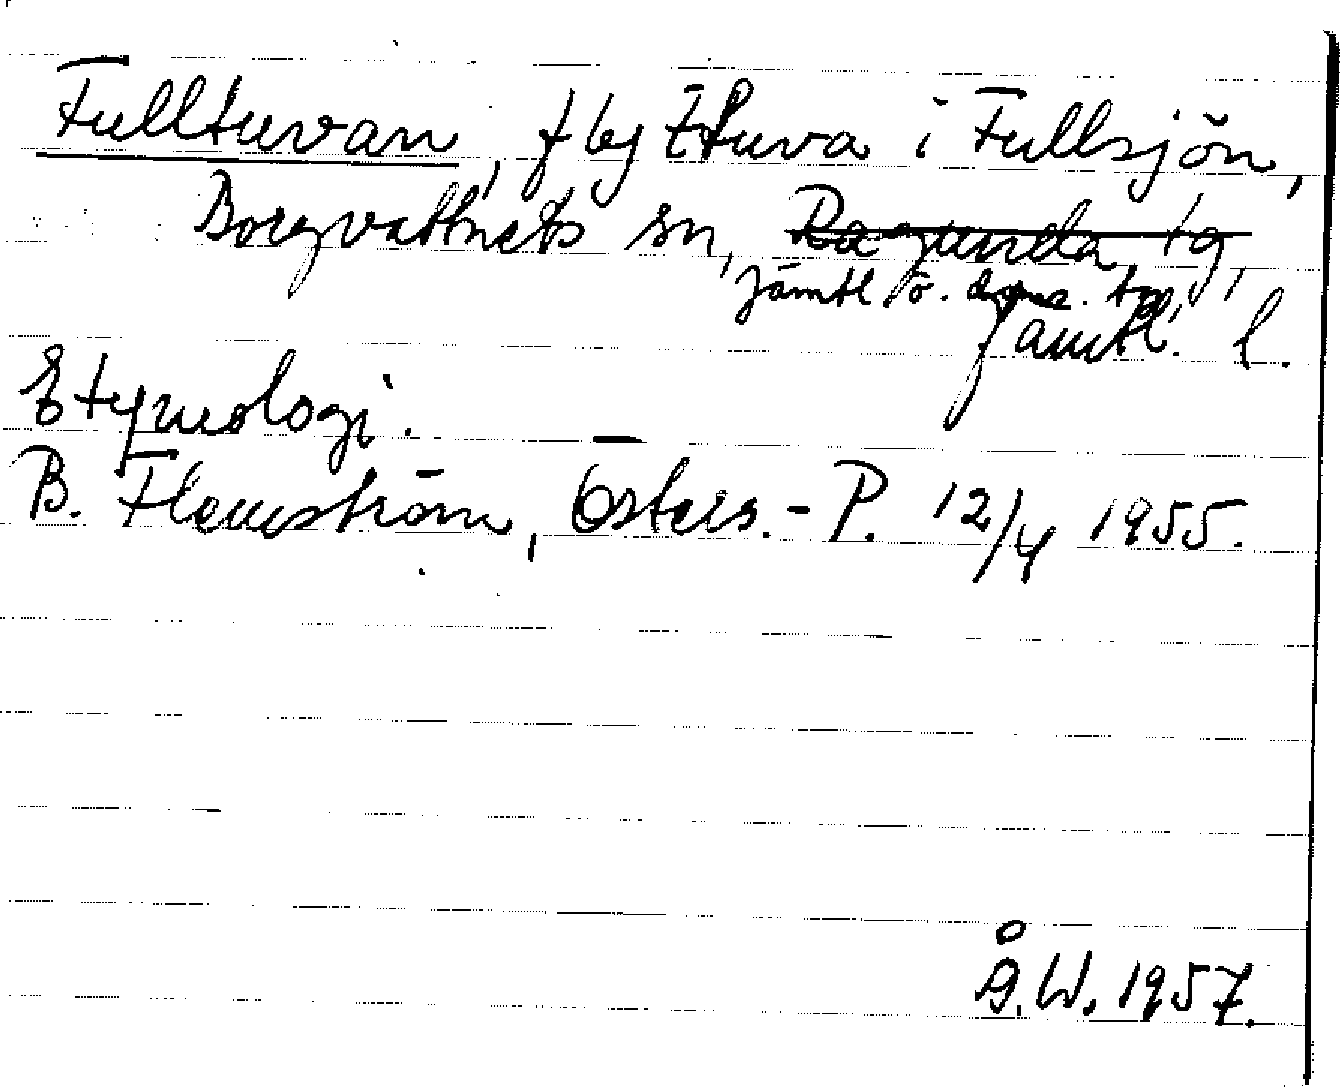 Fulltuvan, flytuva i Fullsjön,
Borgvattnets sn, Ragunda tg,
Jämtl. ö. doms. tg,
Jämtl. l.
Etymologi.
B. Flemström, Östers.-P. 12/4 1955.
Å.W. 1957.